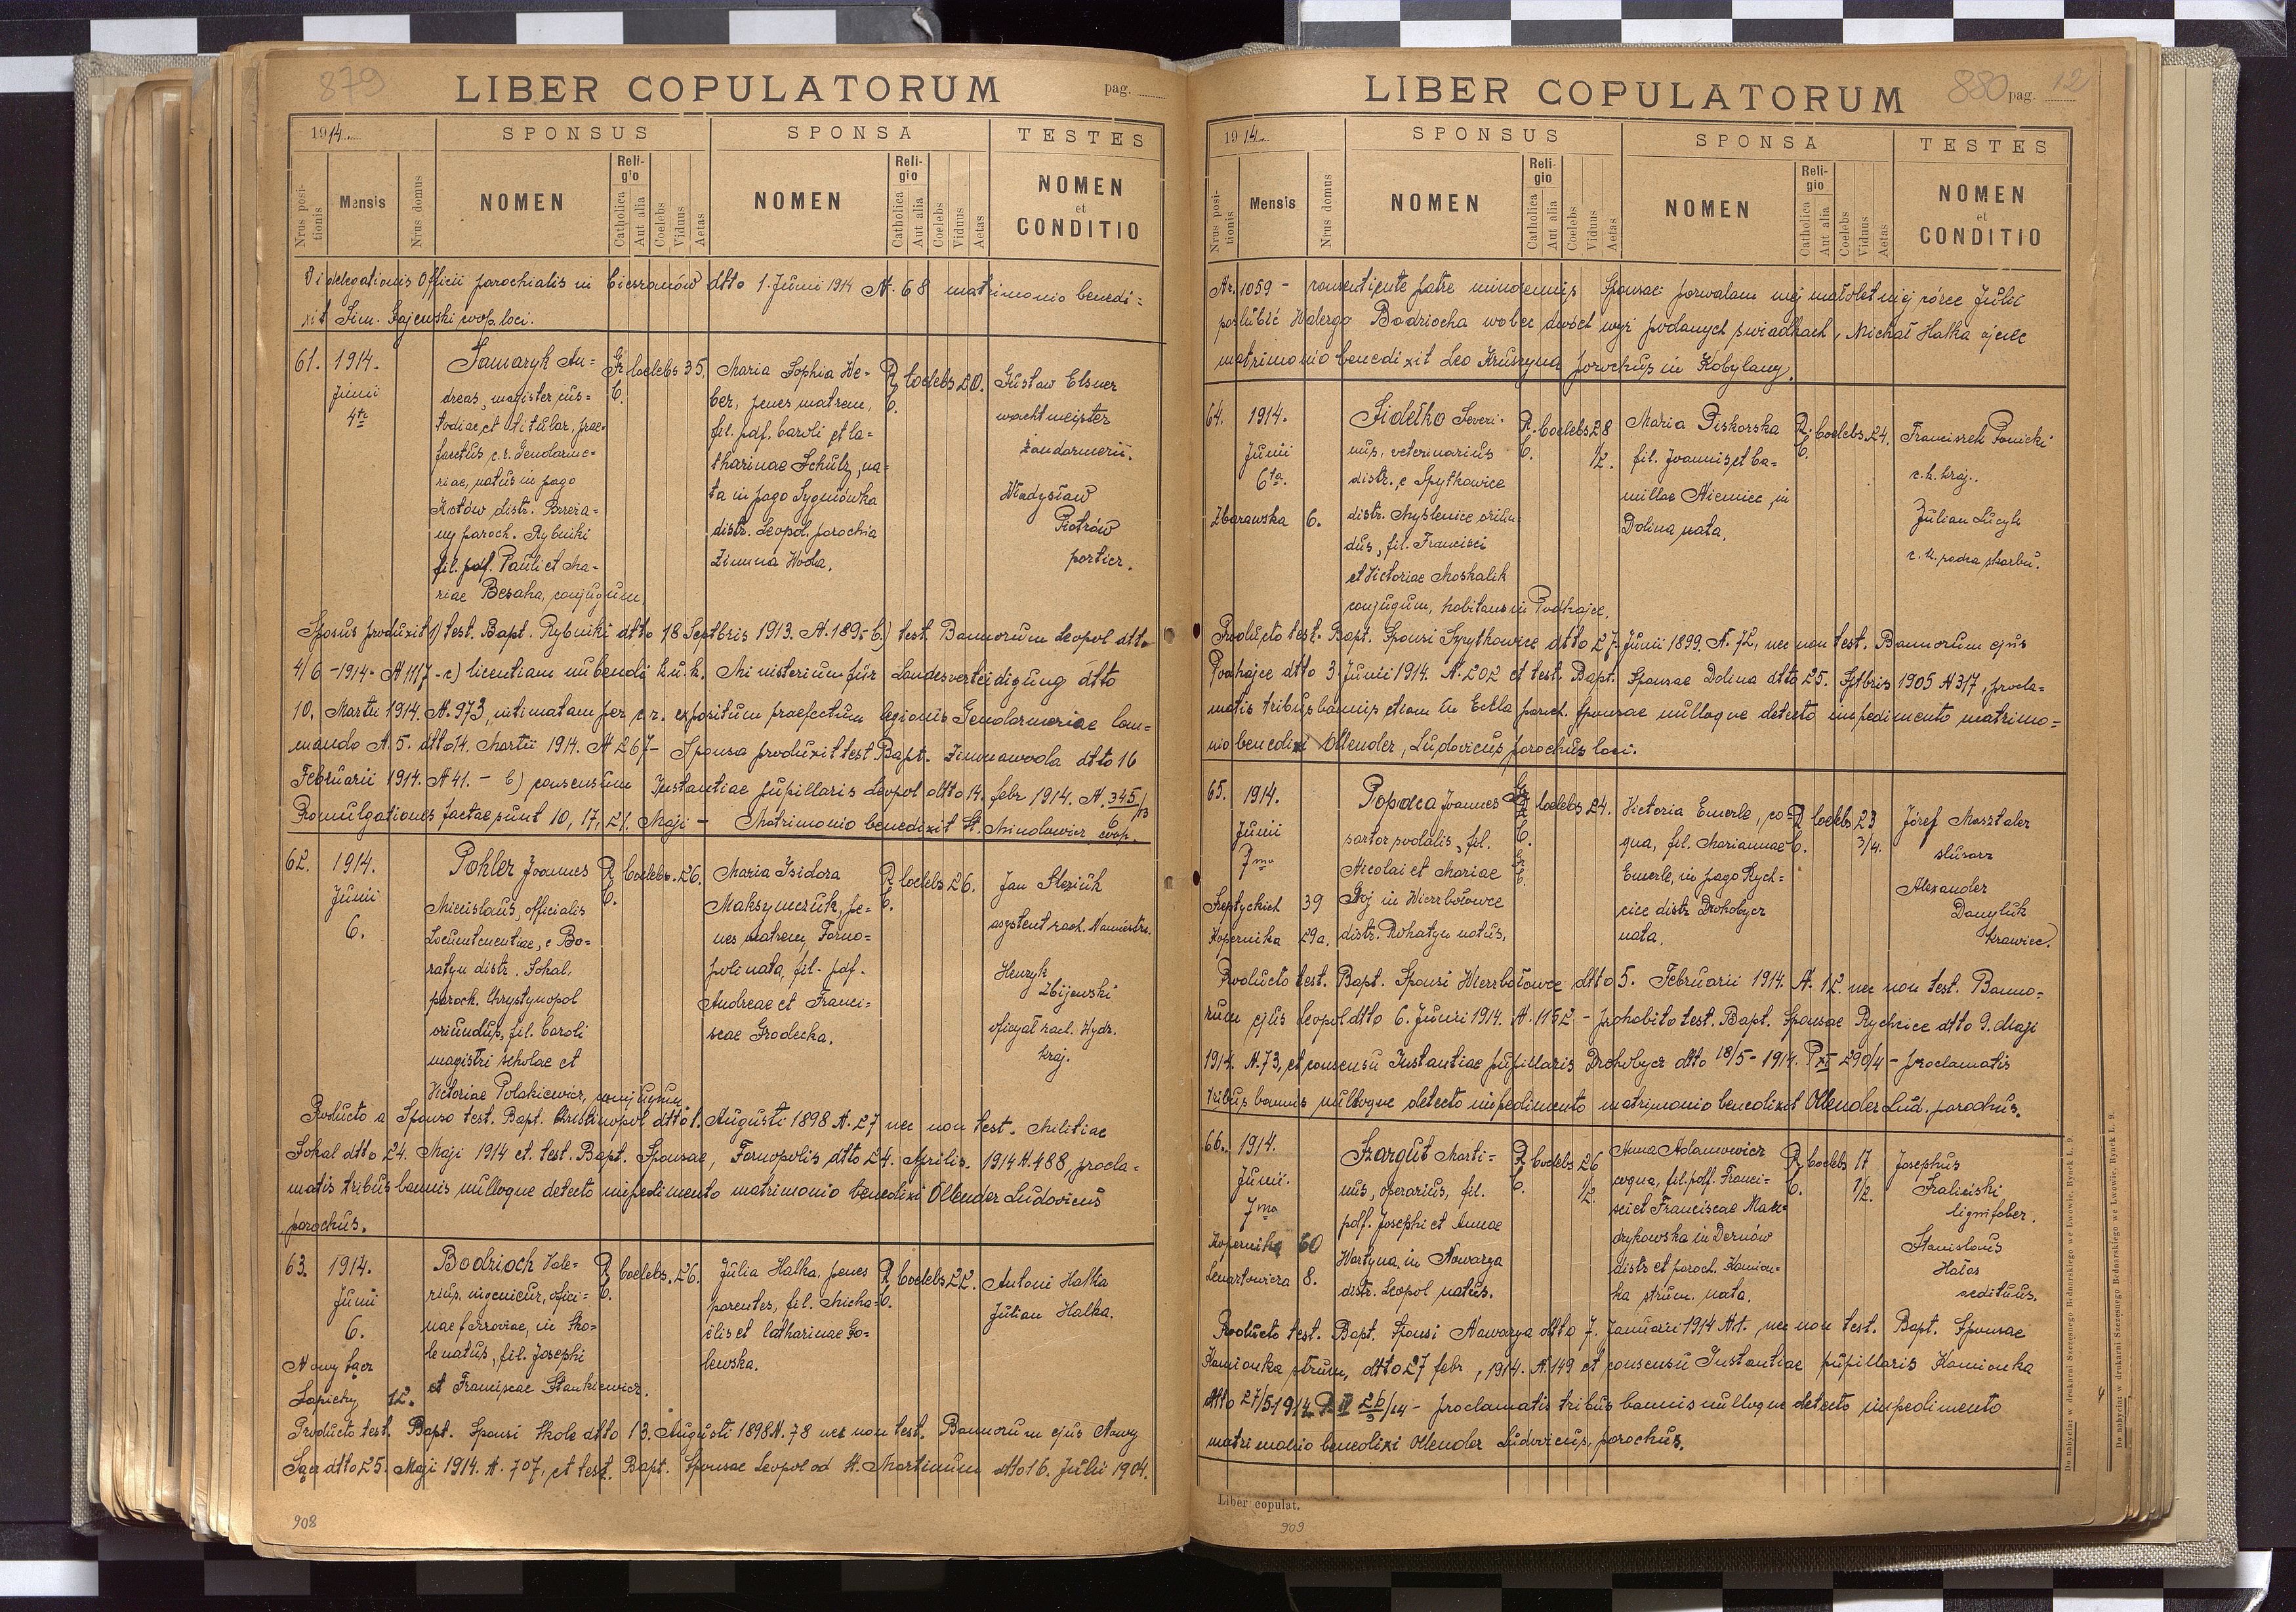 879
LIBER COPULATORUM
pag.
1914
SPONSUS
SPONSA
TESTES
Nrus positionis
Mensis
Nrus domus
NOMEN
Religio
Catholica
Aut alia
Coelebs
Viduus
Aetas
NOMEN
Religio
Catholica
Aut alia
Coelebs
Viduus
Aetas
NOMEN
et
CONDITIO
Vi delegationis Officii parochialis in Cieszanów dtto 1. Junii 1914 N. 68 matrimonio benedi=
xit Sim. Gajewski coop. loci.
61. 1914.
Junii
4ta
Samaryk An=
dreas, magister cus=
todiae et titular. prae=
fectus c.r. Gendarme=
riae, natus in pago
Kotów distr. Brzeża=
ny paroch. Rybniki
fil. pdf. Pauli et Ma=
riae Besaha, conjugum,
Gr. C. Coelebs 35.
Maria Sophia We=
ber, penes matrem,
fil. pdf. Caroli et Ca=
tharinae Schulz, na=
ta in pago Sygniówka
distr. Leopol. parochia
Zimna Woda.
R. C. Coelebs 20.
Gustaw Elsner
wachtmeister
żandarmerii.
Władysław
Piotrów
portier.
Sposus produxit 1) test. Bapt. Rybniki dtto 18 Septbris 1913. N. 189, b.) test. Bannorum Leopol dtto
4/6 -1914- N 1117 - c) licentiam nubendi k.u.k. Ministerium für Landesverteidigung dtto
10. Martii 1914. N. 973, intimatam per c.r. expositum praefectum legionis Gendarmeriae Com=
mando N. 5. dtto 14. Martii 1914. N 267 - Sponsa produxit test Bapt. Zimnawoda dtto 16
Februarii 1914. N 41. - b) consensum Instantiae pupillaris Leopol dtto 14. febr 1914. N. 345/6/13
Promulgationes factae sunt 10, 17, 21. Maji - Matrimonio benedixit St. Minolowicz coop.
62. 1914.
Junii
6.
Pohler Joannes
Miecislaus, officialis
Locumtenentiae, e Bo=
ratyn distr. Sokal,
paroch. Chrystynopol
oriundus, fil. Caroli
magistri scholae et
Victoriae Polakiewicz, conjugum
R. C. Coelebs. 26.
Maria Isidora
Maksymczuk, pe=
nes matrem, Tarno=
poli nata, fil. pdf.
Andreae et Franci=
scae Grodecka.
R. C. Coelebs 26.
Jan Śleziuk
asystent rach. Namiestn.
Henryk
Zbijewski
oficyał rach. Wydz.
kraj.
Producto a Sponso test. Bapt. Christinopol dtto 1. Augusti 1898 N. 27 nec non test. Militiae
Sokal dtto 24. Maji 1914 et. test. Bapt. Sponsae, Tarnopolis dtto 24. Aprilis. 1914 N. 488, procla=
matis tribus bannis nulloque detecto impedimento matrimonio benedixi Ollender Ludovicus
parochus.
63. 1914.
Junii
6.
Nowy Sącz
Sapiehy 12.
Bodrioch Vale=
rius, ingenieur, offici=
nae ferroviae, in Sko=
le natus, fil. Josephi
et Franciscae Stankiewicz.
R. C. Coelebs. 26.
Julia Halka, penes
parentes, fil. Micha=
elis et Catharinae Go=
lewska.
R. C. Coelebs 22.
Antoni Halka
Julian Halka.
Producto test. Bapt. Sponsi Skole dtto 13. Augusti 1898 N. 78 nec non test. Bannorum ejus Nowy
Sącz dtto 25. Maji 1914. N. 707, et test. Bapt. Sponsae Leopol ad St. Martinum dtto 16. Julii 1904.
908
880
LIBER COPULATORUM
pag. 12
1914
SPONSUS
SPONSA
TESTES
Nrus positionis
Mensis
Nrus domus
NOMEN
Religio
Catholica
Aut alia
Coelebs
Viduus
Aetas
NOMEN
Religio
Catholica
Aut alia
Coelebs
Viduus
Aetas
NOMEN
et
CONDITIO
Nr. 1059 - consentiente patre minorennis Sponsae: pozwalam mej małoletniej córce Julii
poślubić Walerego Bodriocha wobec dwóch wyż podanych świadkach, Michał Halka ojciec
matrimonio benedixit Leo Kruszyna parochus in Kobylany.
64. 1914.
Junii
6ta.
Zborowska 6.
Sidełko Severi=
nus, veterinarius
distr., e Spytkowice
distr. Myślenice oriun=
dus, fil. Francisci
et Victoriae Moskalik
conjugum, habitans in Podhajce.
R. C. Coelebs 28 1/2.
Maria Piskorska
fil. Joannis et Ca=
millae Niemiec, in
Dolina nata.
R. C. Coelebs 24.
Franciszek Ponicki
c. k. kraj.
Julian Lucyk
c. k. radca skarbu.
Producto test. Bapt. Sponsi Spytkowice dtto 27. Junii 1899. N. 72, nec non test. Bannorum ejus
Podhajce dtto 3 Junii 1914. N. 202 et test. Bapt. Sponsae Dolina dtto 25. Sptbris 1905 N 317, procla=
matis tribus bannis etiam in Eccla paroch. Sponsae nulloque detecto impedimento matrimo=
nio benedixi Ollender, Ludovicus parochus loci.
65. 1914.
Junii
7mo
Szeptyckich 39
Kopernika 29a.
Popaca Joannes
sartor sodalis, fil.
Nicolai et Mariae
Stoj in Wierzbołowce
distr. Rohatyn natus.
Gr. C. Coelebs 24.
Victoria Emerle, co=
qua, fil. Mariannae
Emerle, in pago Rych=
cice distr. Drohobycz
nata.
R. C. Coelebs 23 3/4.
Józef Masztaler
ślusarz
Alexander
Danyluk
krawiec.
Producto test. Bapt. Sponsi Wierzbołowce dtto 5. Februarii 1914. N. 12. nec non test. Banno=
rum ejus Leopol dtto 6. Junii 1914. N. 1152 - prohobito test. Bapt. Sponsae Rychcice dtto 9. Maji
1914. N. 73, et consensu Instantiae pupillaris Drohobycz dtto 18/5 - 1914. P XI 290/4 - proclamatis
tribus bannis nulloque detecto impedimento matrimonio benedixit Ollender Lud. parochus.
66. 1914.
Junii.
7mo
Kopernika 60
Lenartowicza 8.
Szargut Marti=
nus, operarius, fil.
pdf. Josephi et Annae
Wartyna, in Nawarya
distr. Leopol natus.
R. C. Coelebs 26 1/2
Anna Adamowicz
coqua, fil. pdf. Franci=
sci et Franciscae Man=
drykowska in Dernów
distr. et paroch. Kamion=
ka strum. nata.
R. C. Coelebs 17 1/2.
Josephus
Fraliński
lignifaber.
Stanislaus
Hałas
aedituus.
Producto test. Bapt. Sponsi Nawarya dtto 7. Januarii 1914 N 1. nec non test. Bapt. Sponsae
Kamionka strum, dtto 27 febr, 1914. N. 149 et consensu Instantiae pupillaris Kamionka
dtto 27/5 1914 P II 26/3/14 - proclamatis tribus bannis nulloque detecto impedimento
matrimonio benedixi Ollender Ludovicus, parochus.
Liber copulat.
909
4
Do nabycia: w drukarni Szczęsnego Bednarskiego we Lwowie, Rynek L. 9.
Do nabycia: w drukarni Szczęsnego Bednarskiego we Lwowie, Rynek L. 9.